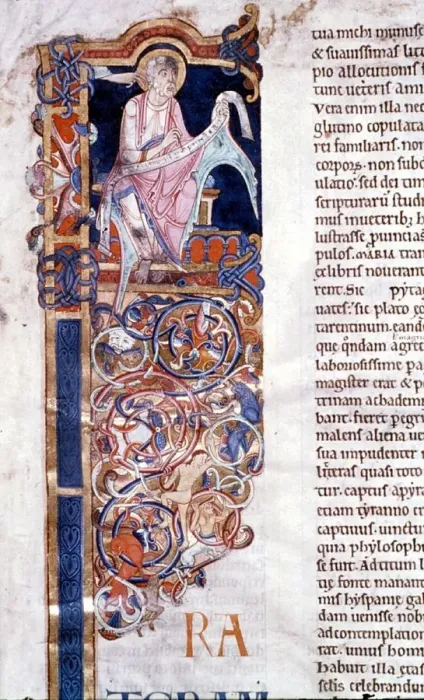 RA
tua michi munusc
& suauissimas litt
pio allocutionis f
tune ueteris ami
Vera enim illa nec
glutino copulata
rei familiaris. non
corporis. non subd
ulatio. sed dei tim
scripturarū studi
mus inueterib; h
lustrasse puincias
pulos. MARIA tran
exlibris nouerant
rent. Sic pytag
uates. sic plato eg
tarentinum. eand
que qndam agrec
laboriosissime pa
magister erat & p
trinam achadem
bant. fieret pegri
malens aliena ue
sua impudenter i
litteras quasi toto
tur. captus apyra
etiam tyranno cr
captiuus. uinctu
quia phylosoph
se fuit. Ad titum l
tie fonte manant
mis hyspanie gal
dam uenisse nobi
ad contemplation
rat. unius homi
habuit illa etas
selis celebrandu